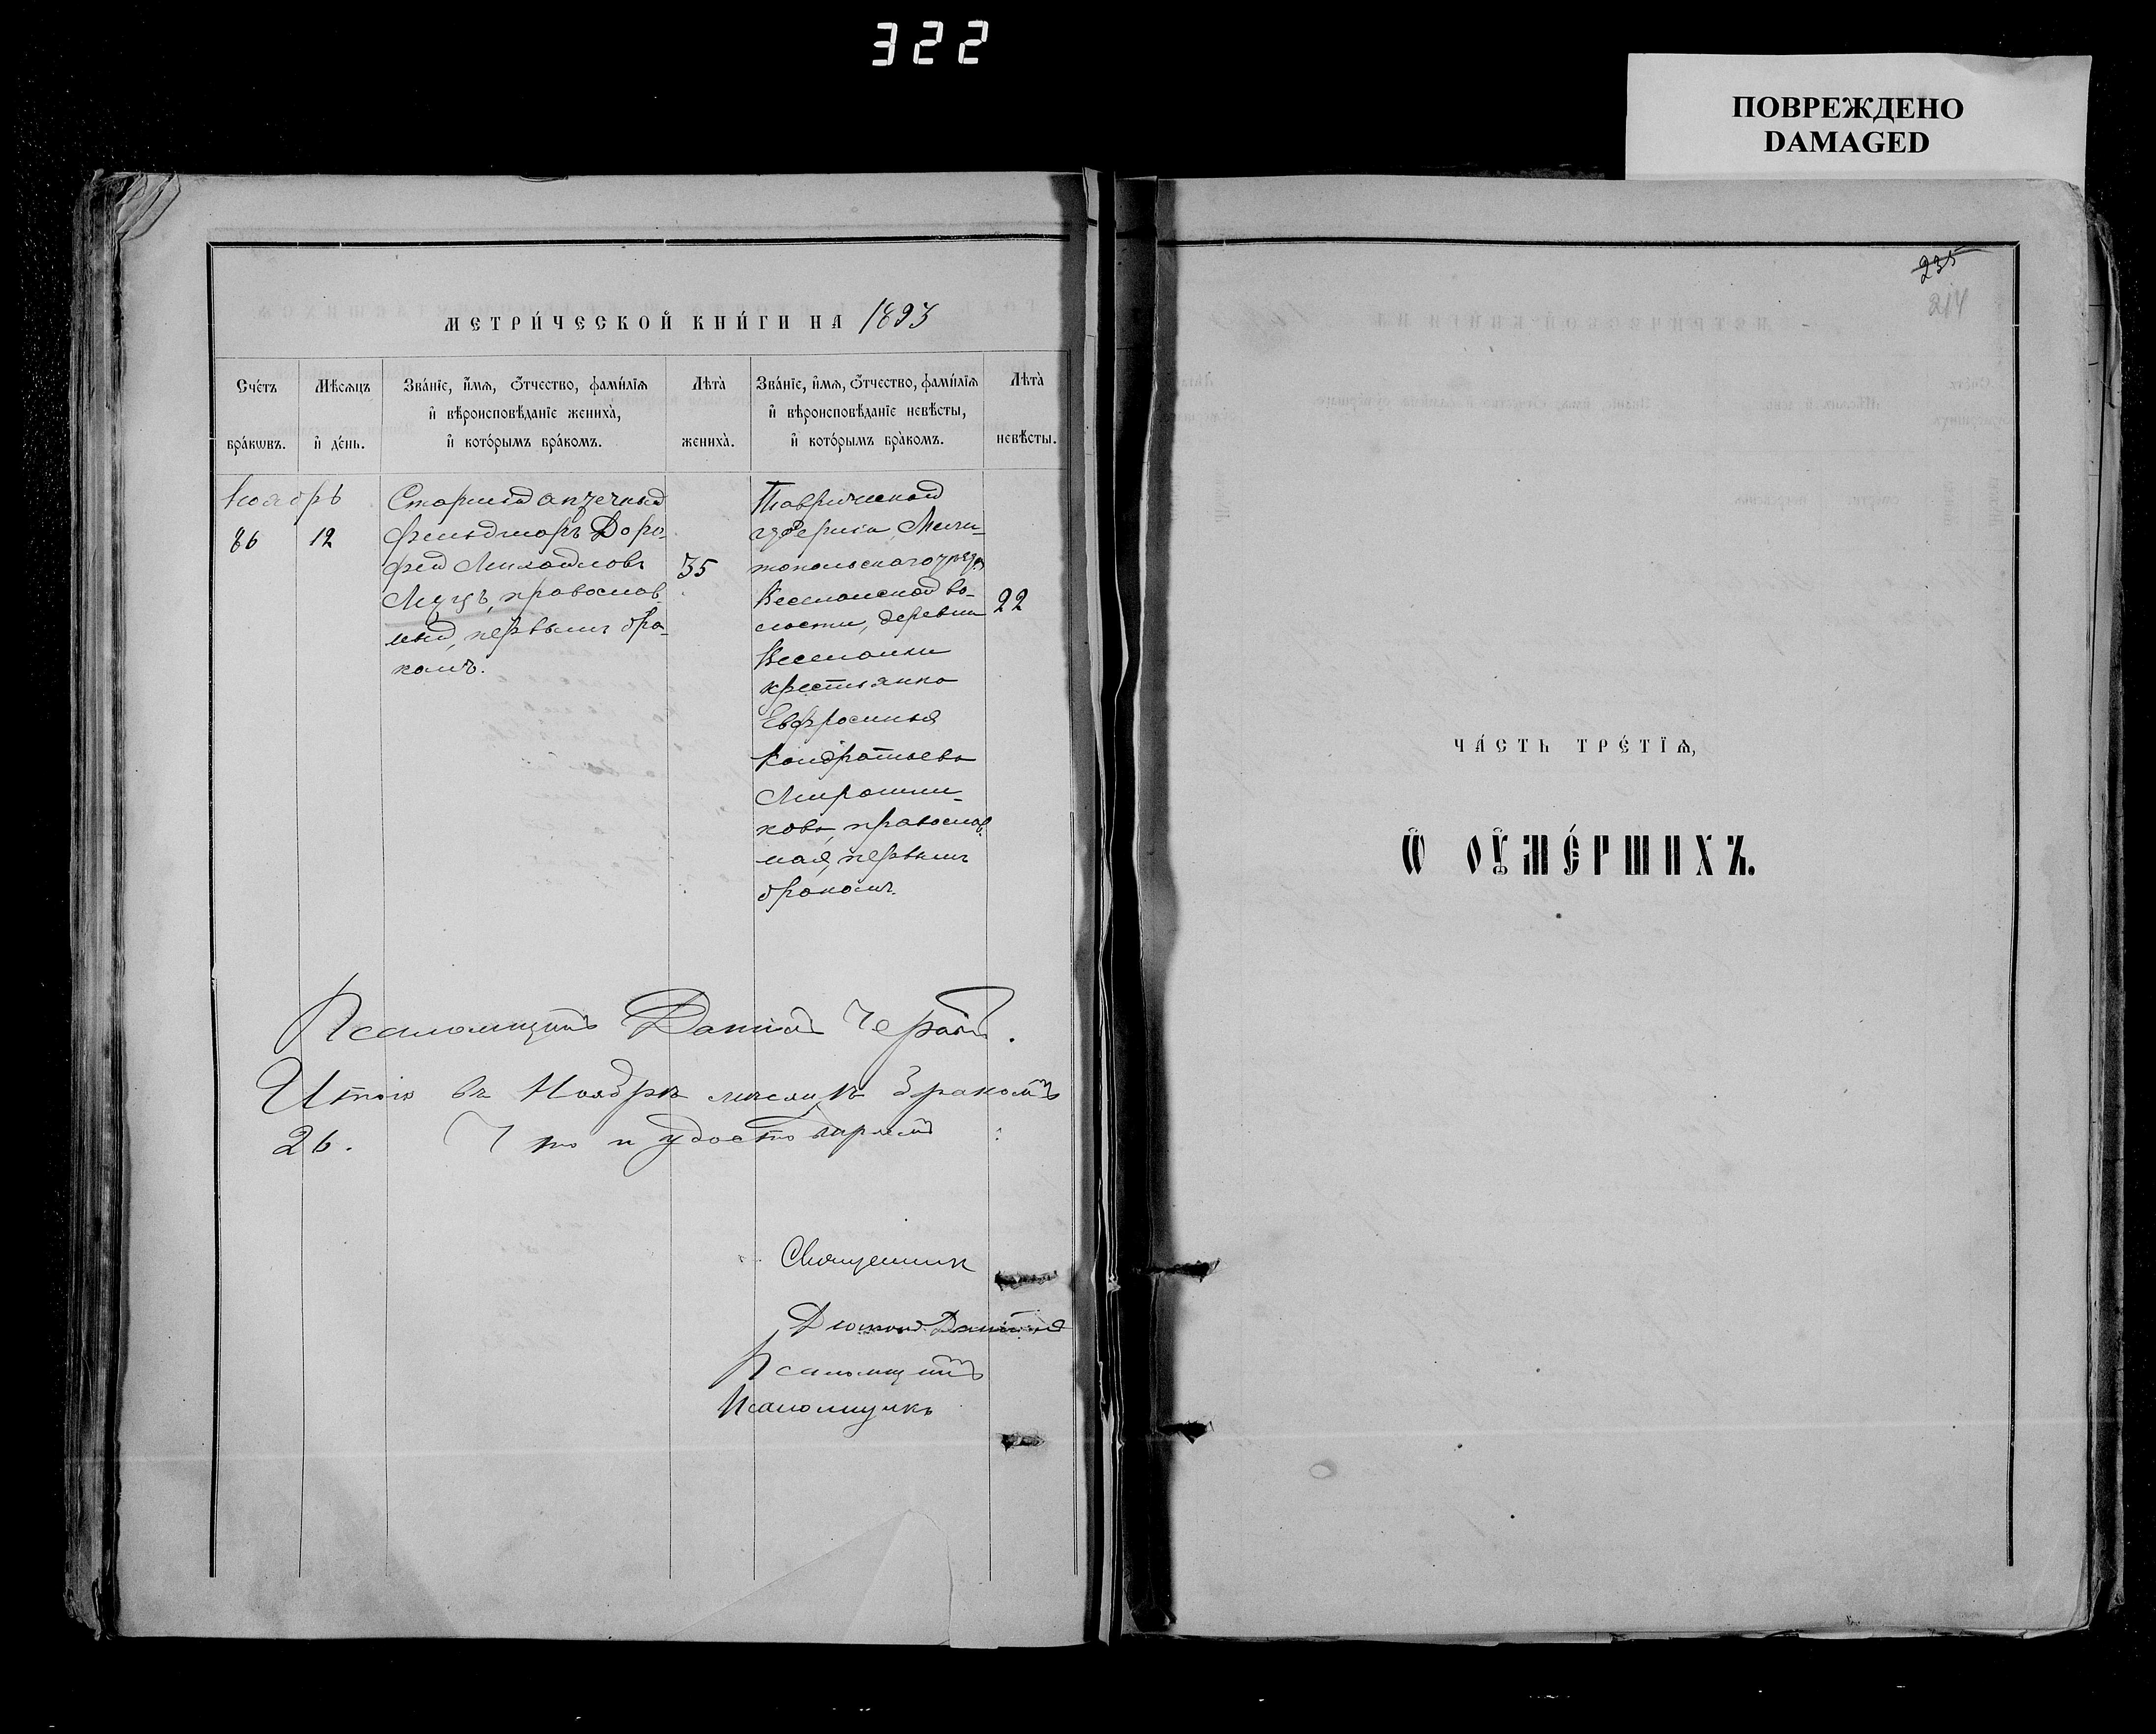 322
ПОВРЕЖДЕНО
DAMAGED
МЕТРИ́ЧЕСКОЙ КНИ́ГИ НА 1893
Сче́тъ бра́кѡвъ.
Мѣ́сѧцъ и҆ де́нь.
Зва́нїе, и҆́мѧ, ѻ҆́тчество, фамѝлїѧ
и҆ вѣроисповѣ́данїе жениха̀,
и҆ кото́рымъ бра́комъ.
Лѣта̀ жениха̀.
Зва́нїе, и҆́мѧ, ѻ҆́тчество, фамѝлїѧ
и҆ вѣроисповѣ́данїе невѣ́сты,
и҆ кото́рымъ бра́комъ.
Лѣта̀ невѣ́сты.
Ноябрь
86
12
Старшій аптечный
фельдшеръ Доро-
фей Михайловъ
Муцъ, православ-
ный, первымъ бра-
комъ.
35
Таврической
губерніи, Мели-
топольскаго уѣзда
Веселовской во-
лости, деревни
Веселовки
крестьянка
Евфросинья
Кондратьева
Мирошни-
кова, православ-
ная, первымъ
бракомъ.
22
Псаломщикъ Даниілъ
Итого въ Ноябрѣ мѣсяцѣ браковъ
26. Что и удостовѣряемъ:
Священник
Псаломщикъ
Псаломщикъ
235
214
ЧА́СТЬ ТРЕ́ТЇѦ,
Ѽ ОУ҆МЕ́РШИХЪ.